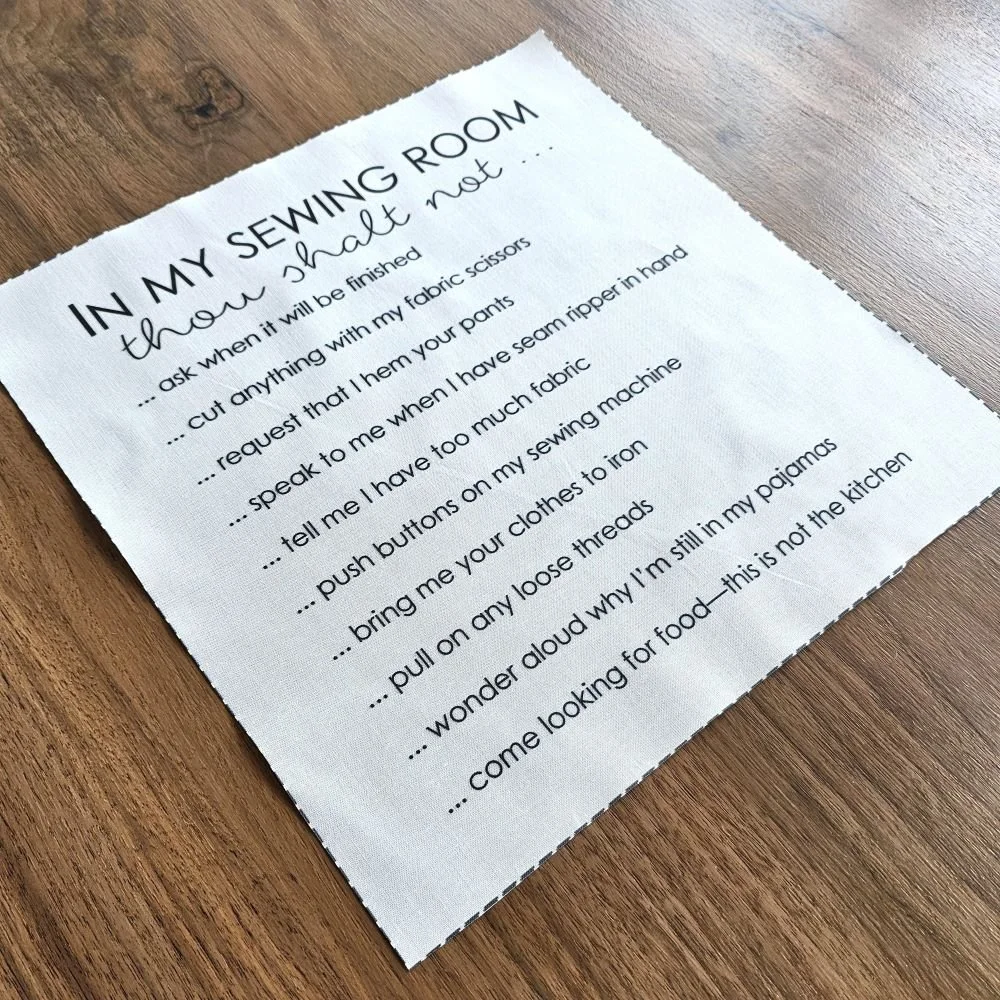 IN MY SEWING ROOM
thou shalt not ...
... ask when it will be finished
... cut anything with my fabric scissors
... request that I hem your pants
... speak to me when I have seam ripper in hand
... tell me I have too much fabric
... push buttons on my sewing machine
... bring me your clothes to iron
... pull on any loose threads
... wonder aloud why I'm still in my pajamas
... come looking for food—this is not the kitchen